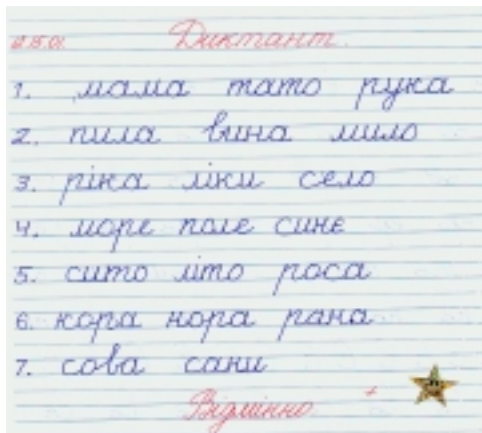 Диктант.
1. мама тато рука
2. пила вина мило
3. ріка ліки село
4. море поле синє
5. сито літо роса
6. кора нора рана
7. сова сани
Відмінно +